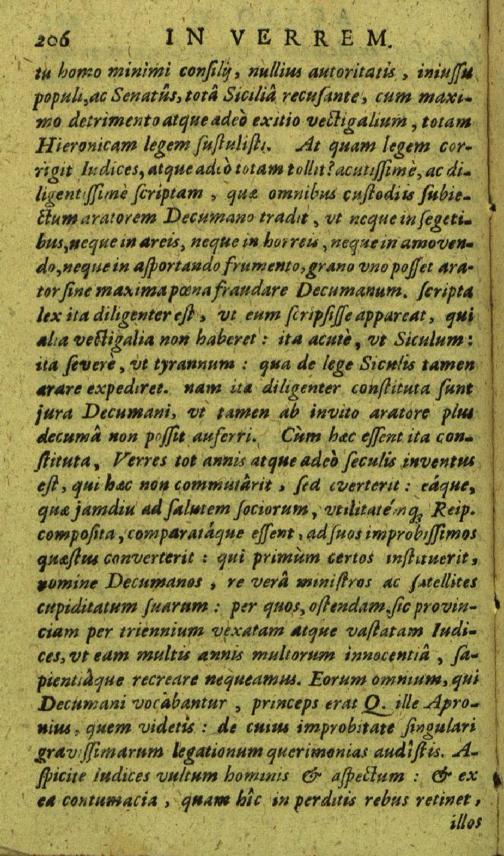 206 IN VERREM.
tu homo minimi consilij, nullius autoritatis, iniussu
populi, ac Senatûs, totâ Siciliâ recusante, cum maxi-
mo detrimento atque adeò exitio vectigalium, totam
Hieronicam legem sustulisti. At quam legem cor-
rigit Iudices, atque adeò totam tollit? acutissimè, ac di-
ligentissimè scriptam, quæ omnibus custodiis subie-
ctum aratorem Decumano tradit, vt neque in segeti-
bus, neque in areis, neque in horreis, neque in amoven-
do, neque in asportando frumento, grano vno posset ara-
tor sine maxima pœna fraudare Decumanum. scripta
lex ita diligenter est, vt eum scripsisse appareat, qui
alia vectigalia non haberet: ita acutè, vt Siculum:
ita severè, vt tyrannum: qua de lege Siculis tamen
arare expediret. nam ita diligenter constituta sunt
jura Decumani, vt tamen ab invito aratore plus
decumâ non possit auferri. Cùm hæc essent ita con-
stituta, Verres tot annis atque adeò seculis inventus
est, qui hæc non commutârit, sed everterit: eáque,
quæ jamdiu ad salutem sociorum, vtilitatémq; Reip.
composita, comparatáque essent, ad suos improbissimos
quæstus converterit: qui primùm certos instituerit,
nomine Decumanos, re verâ ministros ac satellites
cupiditatum suarum: per quos, ostendam, sic provin-
ciam per triennium vexatam atque vastatam Iudi-
ces, vt eam multis annis multorum innocentiâ, sa-
pientiáque recreare nequeamus. Eorum omnium, qui
Decumani vocabantur, princeps erat Q. ille Apro-
nius, quem videtis: de cuius improbitate singulari
gravissimarum legationum querimonias audîstis. A-
spicite Iudices vultum hominis & aspectum: & ex
ea contumacia, quam hîc in perditis rebus retinet,
illos